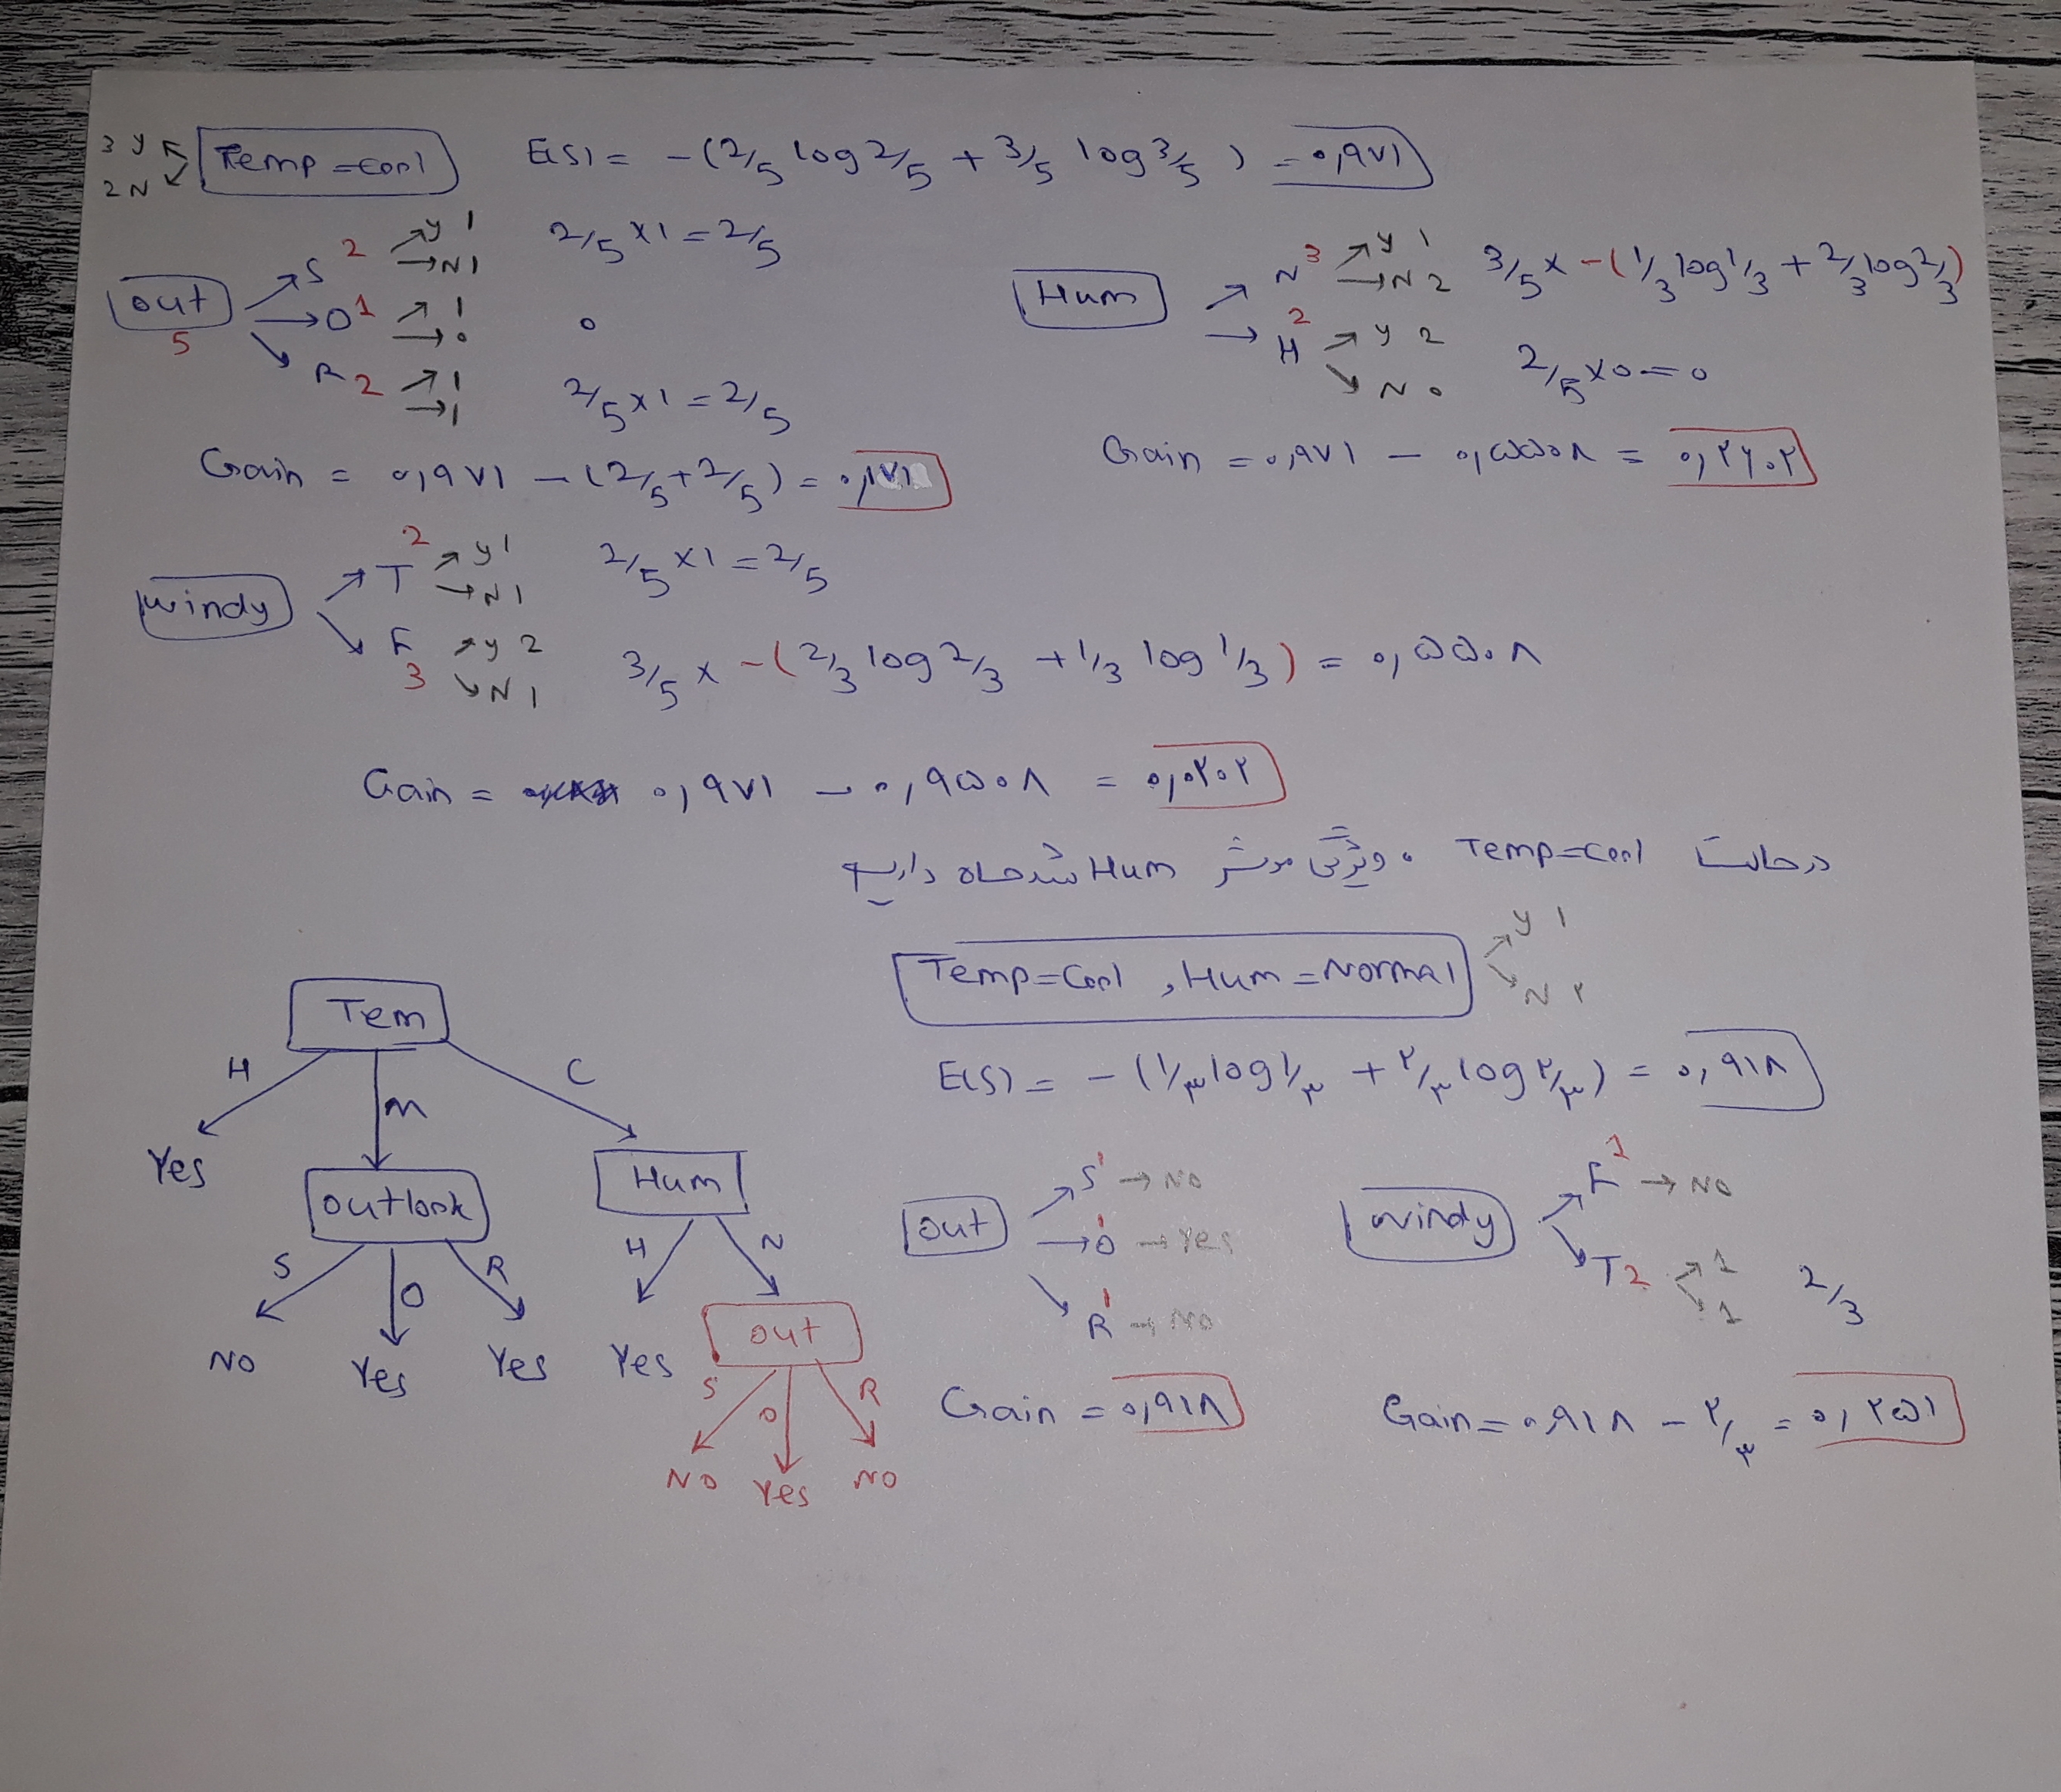 3 y
2 N
Temp = cool E(S) = - (2/5 log 2/5 + 3/5 log 3/5) = ۰,۹۷۱
out 5
S 2 y 1 N 1 2/5 × 1 = 2/5
O 1 1 0 0
R 2 1 1 2/5 × 1 = 2/5
Gain = ۰,۹۷۱ - (2/5 + 2/5) = ۰,۱۷۱
Hum
N 3 y 1 N 2 3/5 × -(1/3 log 1/3 + 2/3 log 2/3)
H 2 y 2 N 0 2/5 × 0 = 0
Gain = ۰,۹۷۱ - ۰,۵۵۰۸ = ۰,۴۲۰۲
windy
T 2 y 1 N 1 2/5 × 1 = 2/5
F 3 y 2 N 1 3/5 × -(2/3 log 2/3 + 1/3 log 1/3) = ۰,۵۵۰۸
Gain = ۰,۹۷۱ - ۰,۹۵۰۸ = ۰,۰۲۰۲
در حالت Temp=cool ویژگی موثر Hum شد حالا داریم
Temp=Cool , Hum=Normal y 1 N ۲
E(S) = - (۱/۳ log ۱/۳ + ۲/۳ log ۲/۳) = ۰,۹۱۸
out
S 1 → No
O 1 → Yes
R 1 → No
Gain = ۰,۹۱۸
windy
F 1 → No
T 2 1 1 2/3
Gain = ۰,۹۱۸ - ۲/۳ = ۰,۲۵۱
Tem
H M C
Yes outlook Hum
S O R H N
No Yes Yes Yes out
S O R
No Yes No